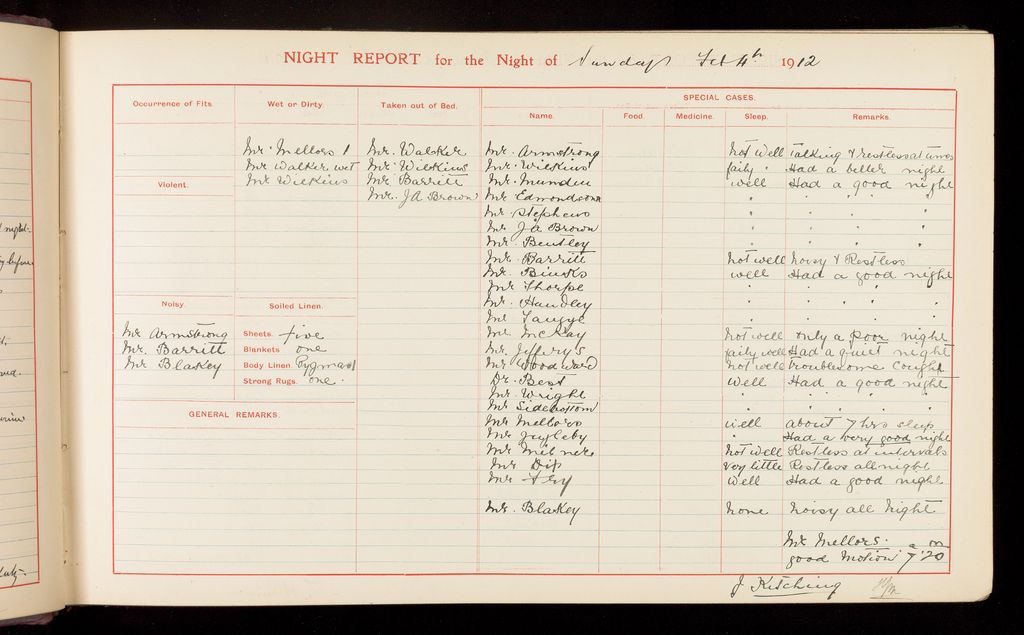 NIGHT REPORT for the Night of Sunday Feb 4th 1912
Occurrence of Fits.
Wet or Dirty.
Mr Mellors 1
Mr Walker wet
Mr Wilkins
Taken out of Bed.
Mr. Walker
Mr. Wilkins
Mr Barritt
Mr. J A Brown
Violent.
Noisy.
Mr Armstrong
Mr. Barritt
Mr Blakey
Soiled Linen.
Sheets. five
Blankets one
Body Linen. Pygmas 1
Strong Rugs. one.
GENERAL REMARKS.
SPECIAL CASES.
Name. Food. Medicine. Sleep. Remarks.
Mr. Armstrong not well Talking & restless at times
Mr. Wilkins faily. Had a better night
Mr. Munden well Had a good night
Mr Edmondson " " " " "
Mr Stephens " " " " "
Mr J A Brown " " " " "
Mr. Bentley " " " " "
Mr. Barritt not well noisy & Restless
Mr. Binks well Had a good night
Mr Thorpe " " " " "
Mr. Handley " " " " "
Mr Tangye " " " " "
Mr McKay not well only a poor night
Mr. Jefferys faily well Had a quiet night
Mr Woodward not well troublesome Cought
Dr. Best well Had a good night
Mr. Wright " " " " "
Mr Sidebottom " " " " "
Mr Mellors well about 7 hrs sleep
Mr Jugleby " Had a very good night
Mr Milner not well Restless at intervals
Mr Dip very little Restless all night
Mr Fry well Had a good night
Mr. Blakey none noisy all night
Mr Mellors. a
good motion 7.20
J Kitching